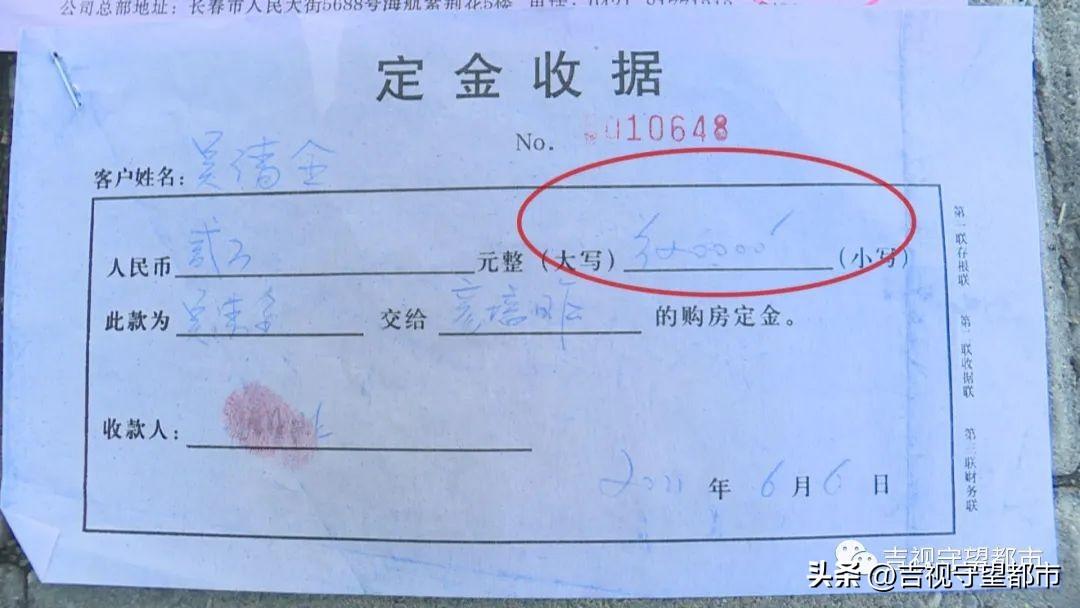 公司总部地址：长春市人民大街5688号海航紫荆花5楼
定金收据
No. 0010648
客户姓名：吴清全
人民币 贰万 元整（大写） ￥20000 （小写）
此款为 交给 的购房定金。
收款人：
2021 年 6 月 6 日
第一联存根联 第二联收据联 第三联财务联
吉视守望都市
头条 @吉视守望都市